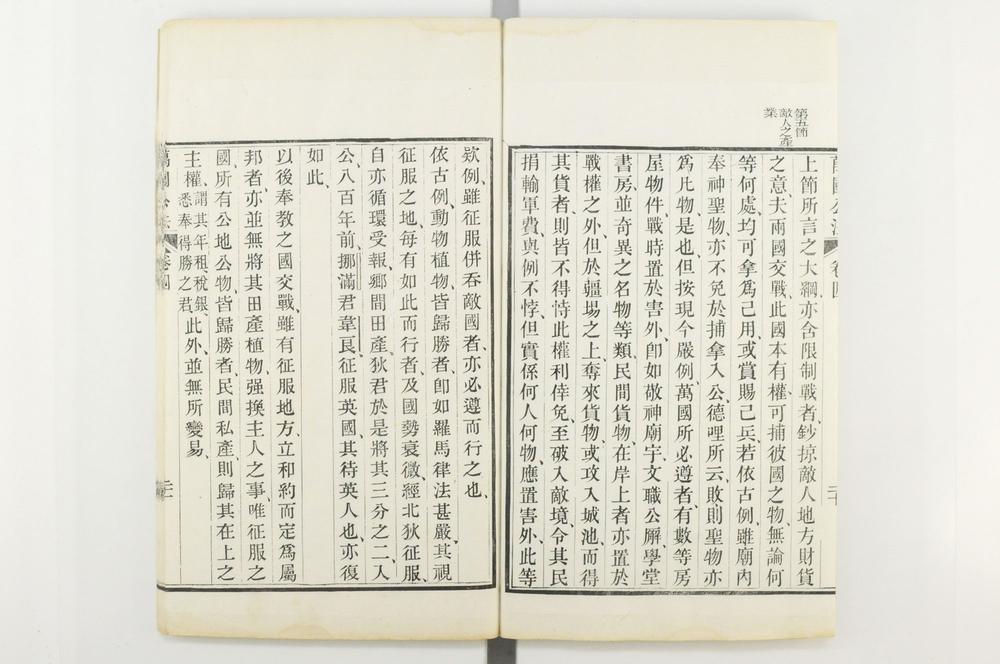 第五節
敵人之產
業
上節所言之大綱、亦含限制戰者、鈔掠敵人地方財貨
之意、夫兩國交戰、此國本有權、可捕彼國之物、無論何
等何處、均可拿爲己用、或賞賜己兵、若依古例、雖廟內
奉神聖物、亦不免於捕拿入公、德哩所云、敗則聖物亦
爲凡物、是也、但按現今嚴例、萬國所必遵者、有數等房
屋物件、戰時置於害外、卽如敬神廟宇、文職公廨、學堂
書房、並奇異之名物等類、民間貨物、在岸上者、亦置於
戰權之外、但於疆場之上、奪來貨物、或攻入城池、而得
其貨者、則皆不得恃此權利倖免、至破入敵境、令其民
捐輸軍費、與例不悖、但實係何人何物、應置害外、此等
欵例、雖征服併吞敵國者、亦必遵而行之也、
依古例、動物植物、皆歸勝者、卽如羅馬律法甚嚴、其視
征服之地、每有如此而行者、及國勢衰微、經北狄征服、
自亦循環受報、鄉間田產、狄君於是將其三分之二入
公、八百年前、挪滿君韋良征服英國、其待英人也、亦復
如此、
以後奉教之國交戰、雖有征服地方、立和約而定爲屬
邦者、亦並無將其田產植物、强換主人之事、唯征服之
國、所有公地公物、皆歸勝者、民間私產、則歸其在上之
主權、謂其年租、稅銀、悉奉得勝之君、此外並無所變易、
萬國公法
卷四